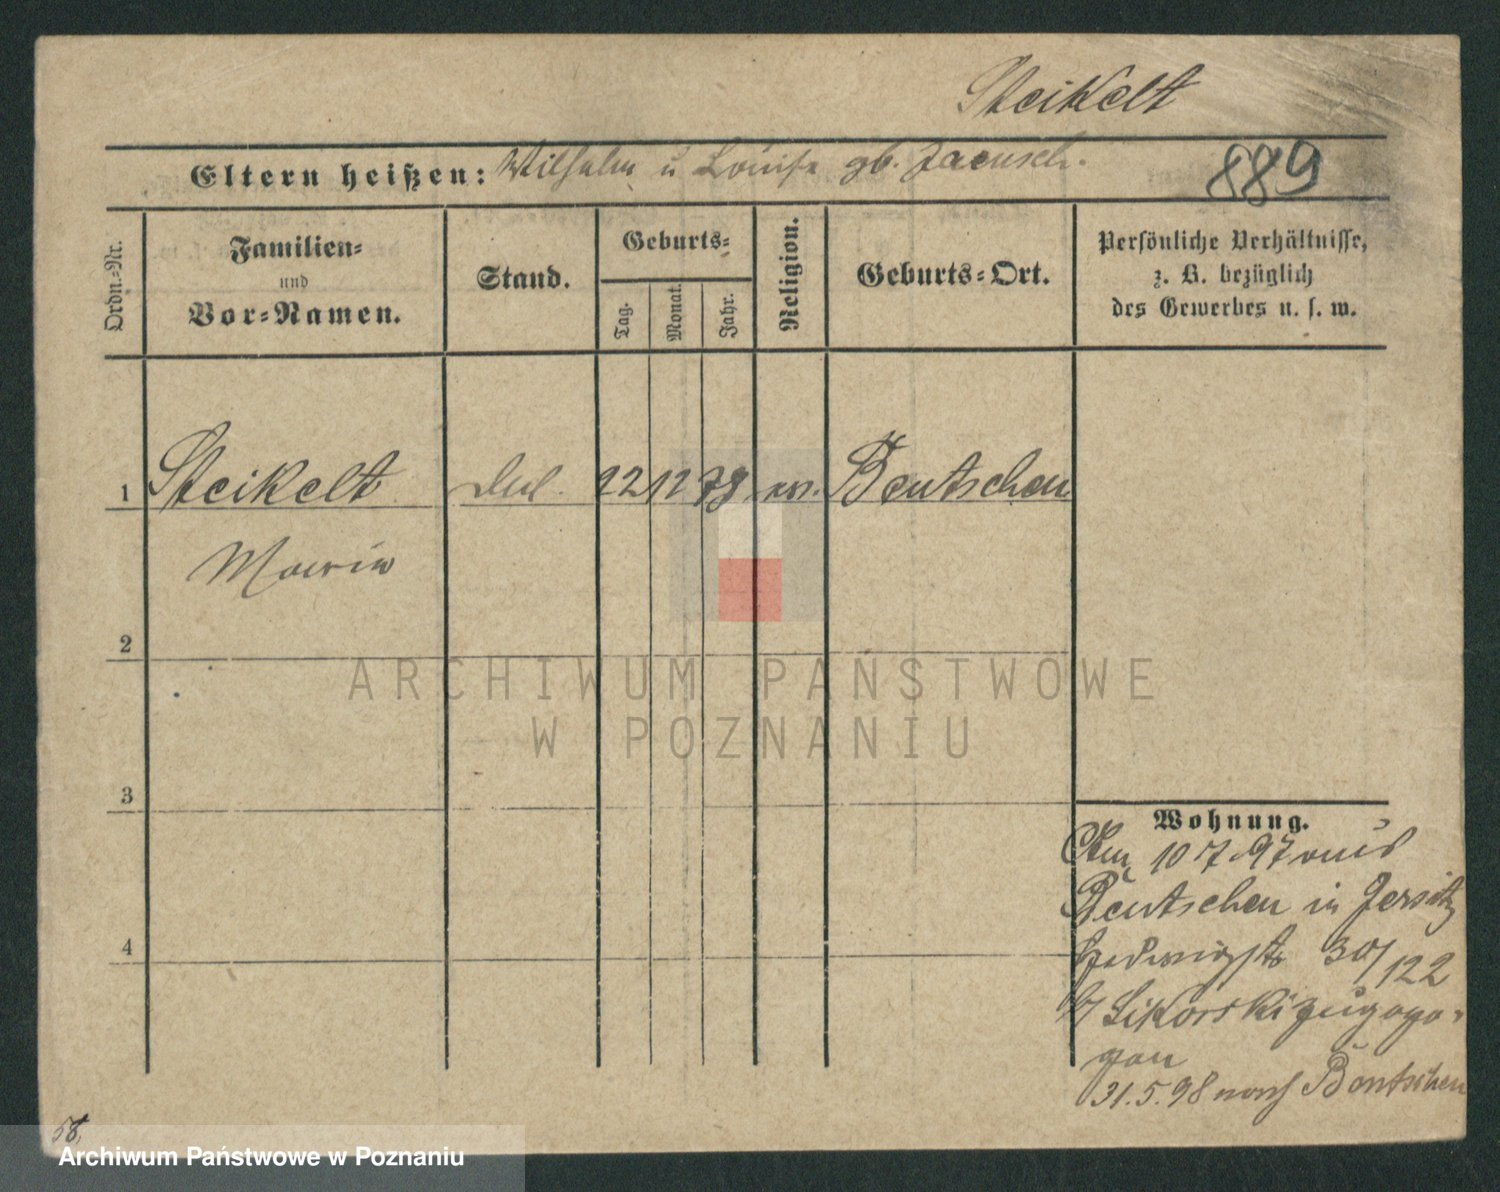 Steikelt
Eltern heißen: Wilhelm u Louise gb. Jaensch.
889
Ordn.=Nr.
Familien=
und
Vor=Namen.
Stand.
Geburts=
Tag.
Monat.
Jahr.
Religion.
Geburts=Ort.
Persönliche Verhältnisse,
z. B. bezüglich
des Gewerbes u. s. w.
1 Steikelt 22 12 78 ev. Bentschen
Maria
2
3
4
Wohnung.
Am 10 7. 97 aus
Bentschen in Jersitz
Hedwigstr 30/122
b/ Sikorski zugezo-
gen
31.5.98 nach Bentschen
58,
ARCHIWUM PAŃSTWOWE
W POZNANIU
Archiwum Państwowe w Poznaniu